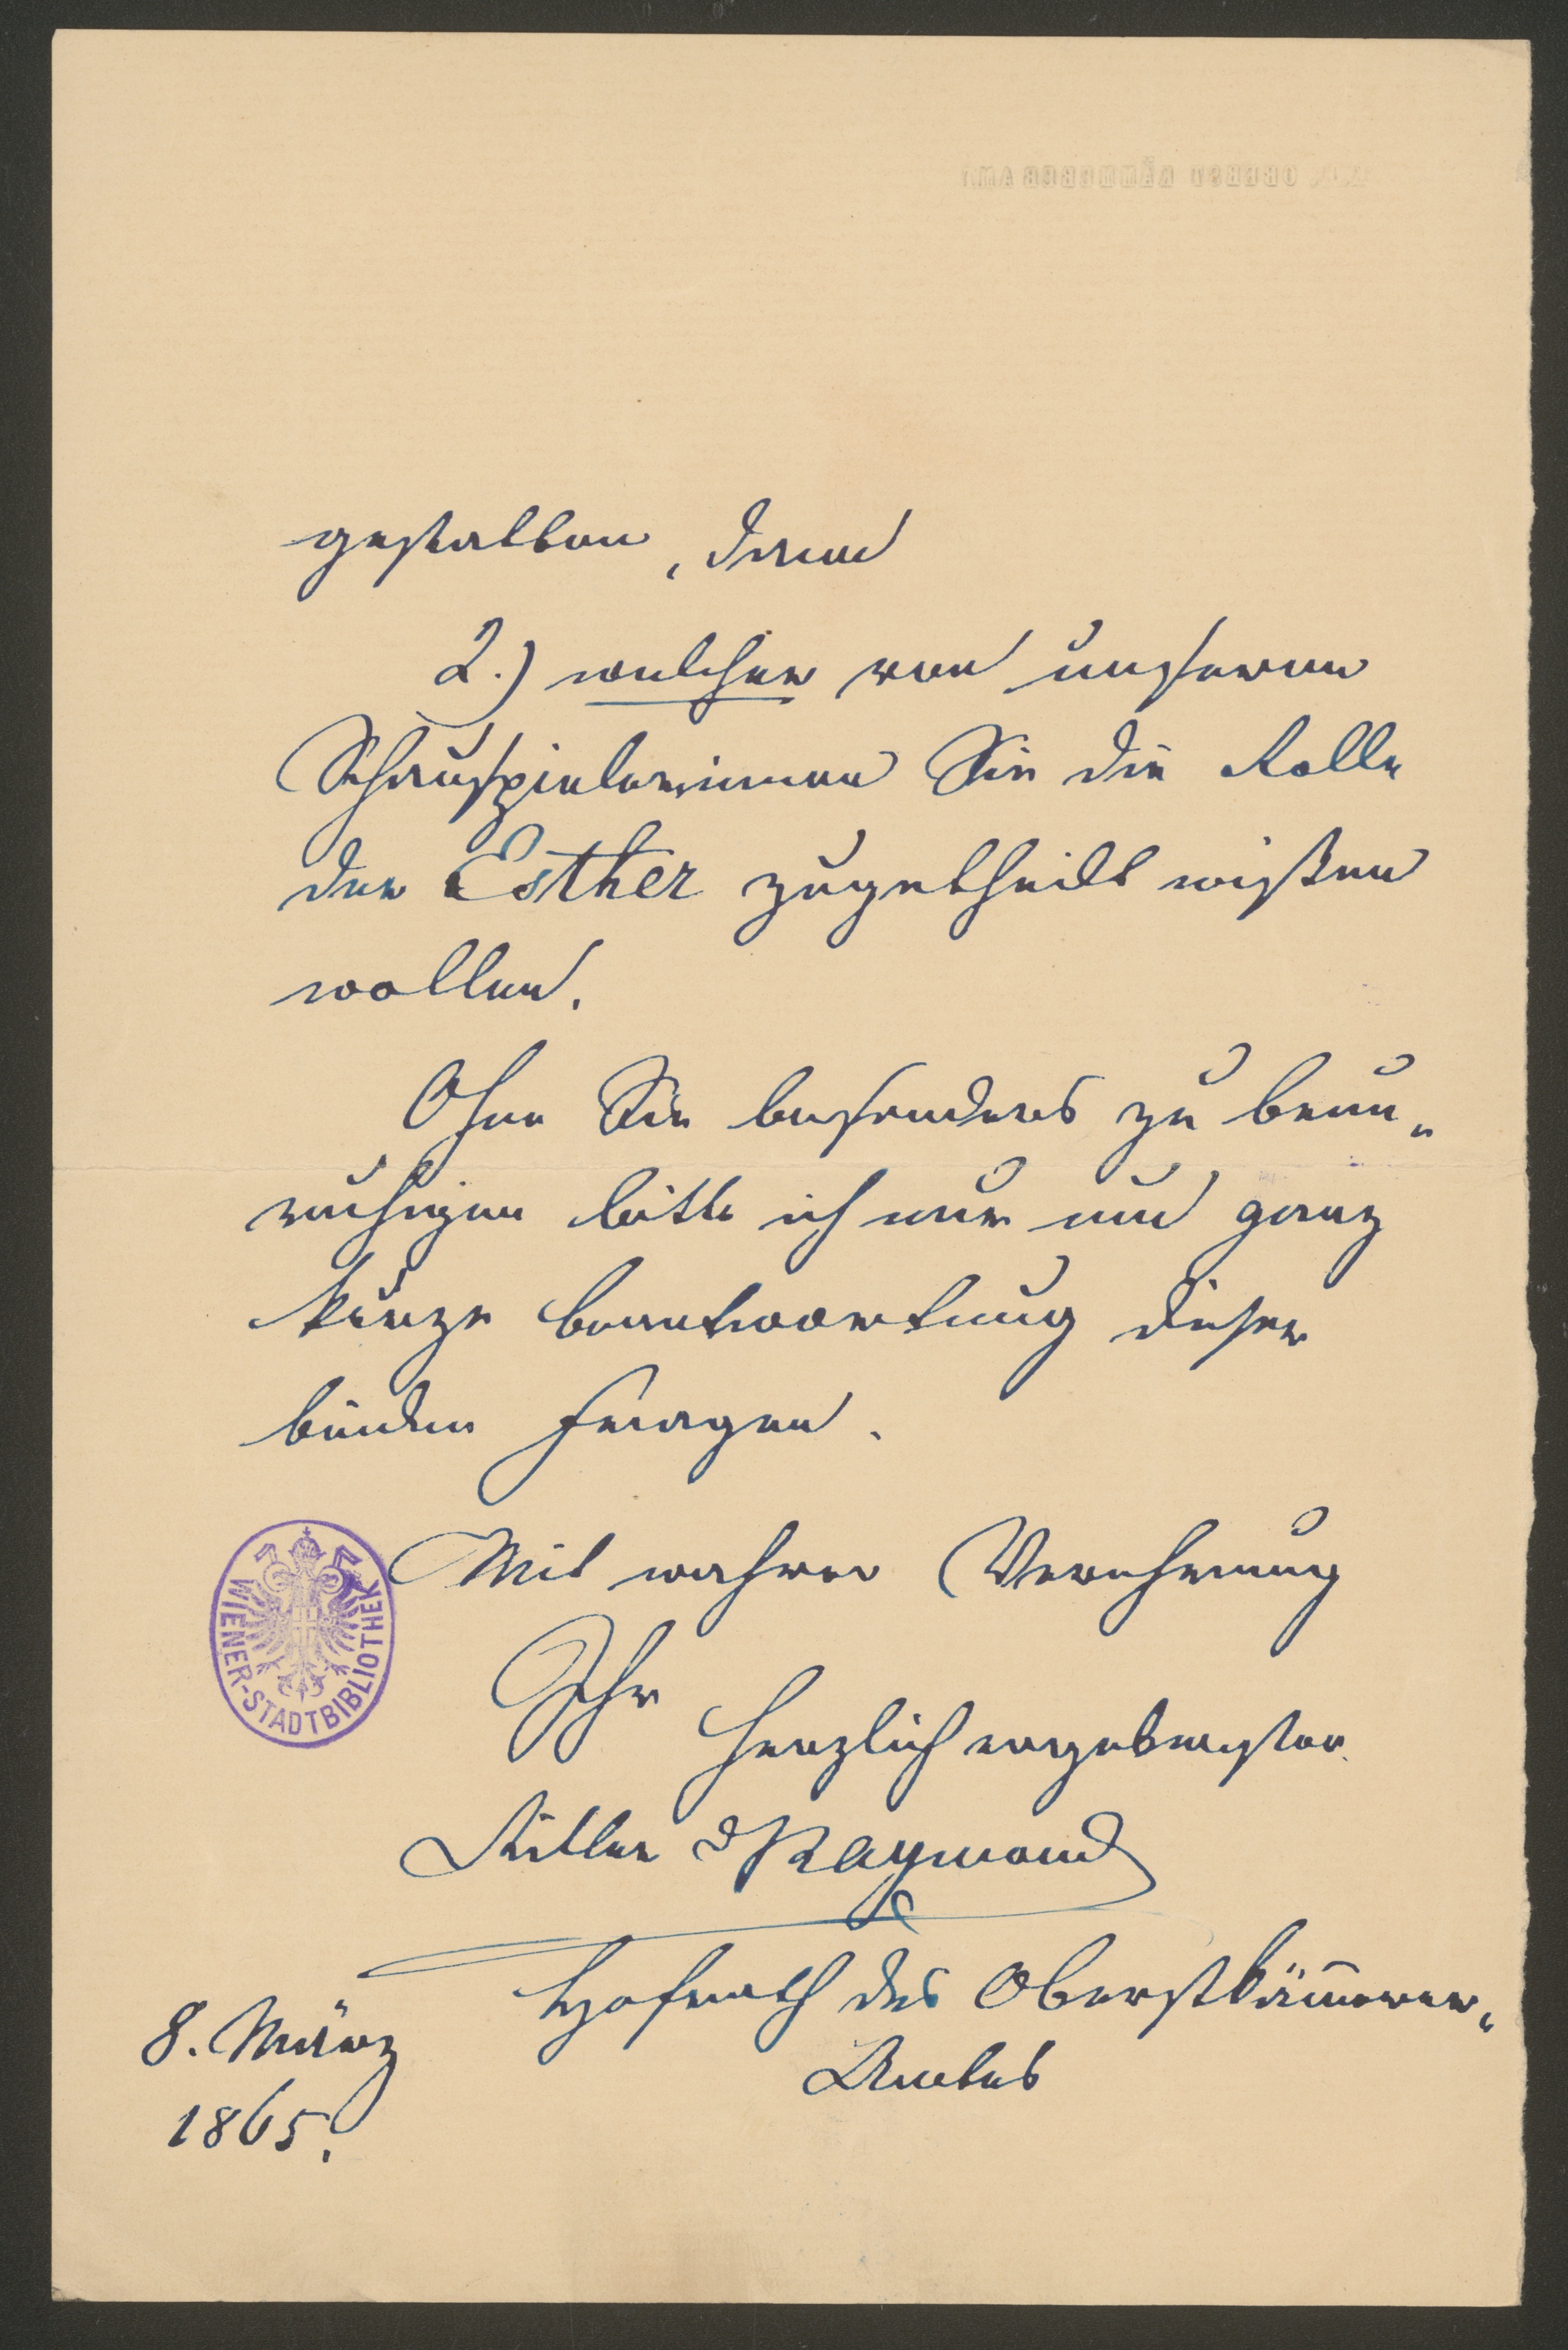 gestatten, dann
2.) welcher von unseren
Schauspielerinnen Sie die Rolle
der Esther zugetheilt wißen
wollen.
Ohne Sie besonders zu beun„
ruhigen bitte ich nur um ganz
kurze beantwortung dieser
beiden Fragen.
Mit wahrer Verehrung
Ihr
herzlich ergebenster
Ritter d Raymond
Hofrath des Oberstkämerer„
Amtes
8. März
1865.
WIENER-STADTBIBLIOTHEK
OBERST KÄMMERER AMT